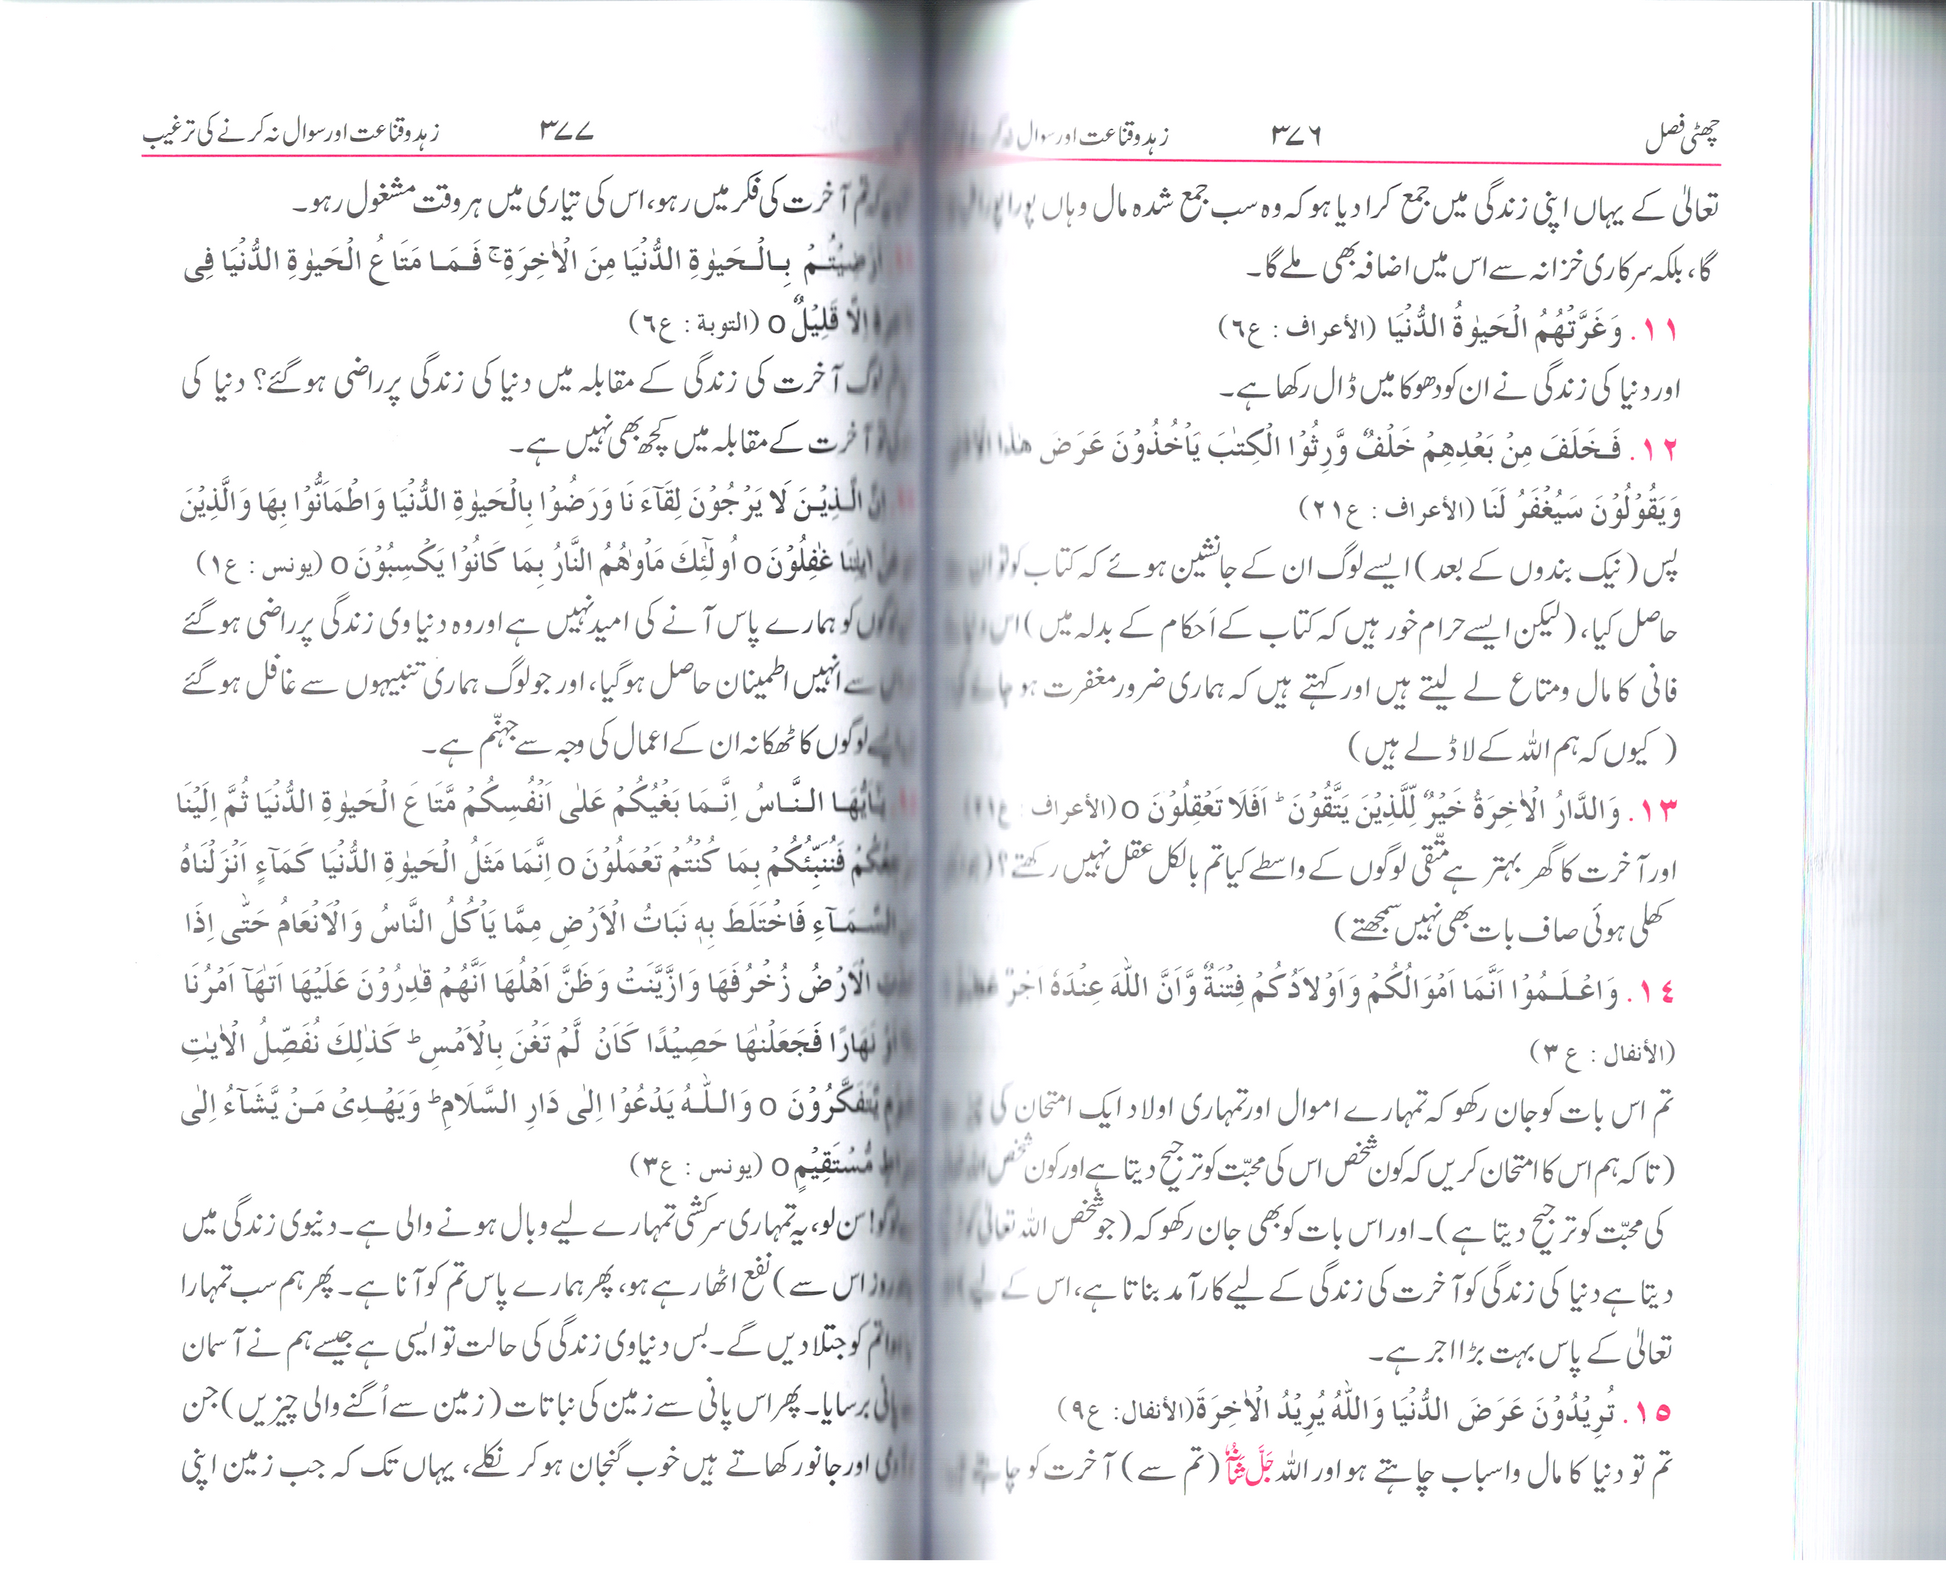 چھٹی فصل ۳۷۶ زہد و قناعت اور سوال
تعالیٰ کے یہاں اپنی زندگی میں جمع کرا دیا ہو کہ وہ سب جمع شدہ مال وہاں پورا پورا
گا، بلکہ سرکاری خزانہ سے اس میں اضافہ بھی ملے گا۔
۱۱. وَغَرَّتْهُمُ الْحَيٰوةُ الدُّنْيَا (الأعراف : ع٦)
اور دنیا کی زندگی نے ان کو دھوکا میں ڈال رکھا ہے۔
۱۲. فَخَلَفَ مِنْۢ بَعْدِهِمْ خَلْفٌ وَّرِثُوا الْكِتٰبَ يَاْخُذُوْنَ عَرَضَ هٰذَا الْاَدْنٰى
وَيَقُوْلُوْنَ سَيُغْفَرُ لَنَا (الأعراف : ع۲۱)
پس (نیک بندوں کے بعد) ایسے لوگ ان کے جانشین ہوئے کہ کتاب کو تو ان
حاصل کیا، (لیکن ایسے حرام خور ہیں کہ کتاب کے اَحکام کے بدلہ میں) اس
فانی کا مال ومتاع لے لیتے ہیں اور کہتے ہیں کہ ہماری ضرور مغفرت ہو جائے
( کیوں کہ ہم اللہ کے لاڈلے ہیں)
۱۳. وَالدَّارُ الْاٰخِرَةُ خَيْرٌ لِّلَّذِيْنَ يَتَّقُوْنَ ؕ اَفَلَا تَعْقِلُوْنَ o (الأعراف : ع۲۱)
اور آخرت کا گھر بہتر ہے متّقی لوگوں کے واسطے کیا تم بالکل عقل نہیں رکھتے؟
کھلی ہوئی صاف بات بھی نہیں سمجھتے)
۱٤. وَاعْلَمُوْا اَنَّمَا اَمْوَالُكُمْ وَاَوْلَادُكُمْ فِتْنَةٌ وَّاَنَّ اللّٰهَ عِنْدَهٗ اَجْرٌ عَظِيْمٌ
(الأنفال : ع ۳)
تم اس بات کو جان رکھو کہ تمہارے اموال اور تمہاری اولاد ایک امتحان کی
(تاکہ ہم اس کا امتحان کریں کہ کون شخص اس کی محبّت کو ترجیح دیتا ہے اور کون شخص
کی محبّت کو ترجیح دیتا ہے)۔ اور اس بات کو بھی جان رکھو کہ (جو شخص اللہ تعالیٰ
دیتا ہے دنیا کی زندگی کو آخرت کی زندگی کے لیے کارآمد بناتا ہے، اس کے لیے)
تعالیٰ کے پاس بہت بڑا اجر ہے۔
۱٥. تُرِيْدُوْنَ عَرَضَ الدُّنْيَا وَاللّٰهُ يُرِيْدُ الْاٰخِرَةَ (الأنفال: ع۹)
تم تو دنیا کا مال واسباب چاہتے ہو اور اللہ جَلَّ شَانُہٗ (تم سے) آخرت کو
۳۷۷ زہد و قناعت اور سوال نہ کرنے کی ترغیب
تم آخرت کی فکر میں رہو، اس کی تیاری میں ہر وقت مشغول رہو۔
اَرَضِيْتُمْ بِالْحَيٰوةِ الدُّنْيَا مِنَ الْاٰخِرَةِ ۚ فَمَا مَتَاعُ الْحَيٰوةِ الدُّنْيَا فِى
اِلَّا قَلِيْلٌ o (التوبة : ع٦)
لوگ آخرت کی زندگی کے مقابلہ میں دنیا کی زندگی پر راضی ہوگئے؟ دنیا کی
آخرت کے مقابلہ میں کچھ بھی نہیں ہے۔
اِنَّ الَّذِيْنَ لَا يَرْجُوْنَ لِقَآءَنَا وَرَضُوْا بِالْحَيٰوةِ الدُّنْيَا وَاطْمَاَنُّوْا بِهَا وَالَّذِيْنَ
اٰيٰتِنَا غٰفِلُوْنَ o اُولٰٓئِكَ مَاْوٰهُمُ النَّارُ بِمَا كَانُوْا يَكْسِبُوْنَ o (يونس : ع۱)
لوگوں کو ہمارے پاس آنے کی امید نہیں ہے اور وہ دنیاوی زندگی پر راضی ہوگئے
سے انہیں اطمینان حاصل ہوگیا، اور جو لوگ ہماری تنبیہوں سے غافل ہوگئے
لوگوں کا ٹھکانہ ان کے اعمال کی وجہ سے جہنّم ہے۔
يٰٓاَيُّهَا النَّاسُ اِنَّمَا بَغْيُكُمْ عَلٰى اَنْفُسِكُمْ مَّتَاعَ الْحَيٰوةِ الدُّنْيَا ثُمَّ اِلَيْنَا
فَنُنَبِّئُكُمْ بِمَا كُنْتُمْ تَعْمَلُوْنَ o اِنَّمَا مَثَلُ الْحَيٰوةِ الدُّنْيَا كَمَآءٍ اَنْزَلْنَاهُ
السَّمَآءِ فَاخْتَلَطَ بِهٖ نَبَاتُ الْاَرْضِ مِمَّا يَاْكُلُ النَّاسُ وَالْاَنْعَامُ حَتّٰى اِذَا
الْاَرْضُ زُخْرُفَهَا وَازَّيَّنَتْ وَظَنَّ اَهْلُهَا اَنَّهُمْ قٰدِرُوْنَ عَلَيْهَا اَتٰهَآ اَمْرُنَا
اَوْ نَهَارًا فَجَعَلْنٰهَا حَصِيْدًا كَاَنْ لَّمْ تَغْنَ بِالْاَمْسِ ؕ كَذٰلِكَ نُفَصِّلُ الْاٰيٰتِ
يَّتَفَكَّرُوْنَ o وَاللّٰهُ يَدْعُوْا اِلٰى دَارِ السَّلَامِ ؕ وَيَهْدِىْ مَنْ يَّشَآءُ اِلٰى
مُّسْتَقِيْمٍ o (يونس : ع۳)
لوگو! سن لو، یہ تمہاری سرکشی تمہارے لیے وبال ہونے والی ہے۔ دنیوی زندگی میں
اس سے) نفع اٹھا رہے ہو، پھر ہمارے پاس تم کو آنا ہے۔ پھر ہم سب تمہارا
تم کو جتلا دیں گے۔ بس دنیاوی زندگی کی حالت تو ایسی ہے جیسے ہم نے آسمان
پانی برسایا۔ پھر اس پانی سے زمین کی نباتات (زمین سے اُگنے والی چیزیں) جن
اور جانور کھاتے ہیں خوب گنجان ہو کر نکلے، یہاں تک کہ جب زمین اپنی